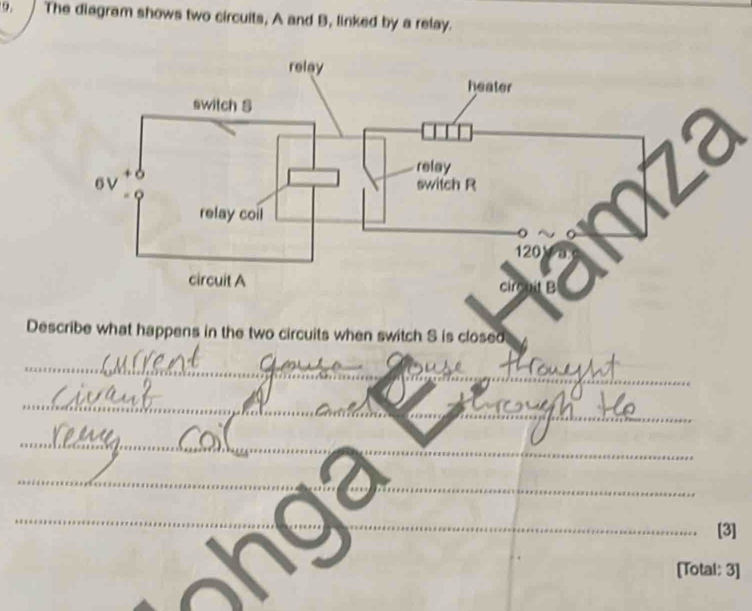 9. The diagram shows two circuits, A and B, linked by a relay.
relay
heater
switch S
6V
+
-
relay
switch R
relay coil
~
120 V a.c
circuit A
circuit B
Describe what happens in the two circuits when switch S is closed
current gouse throught
A and through the
coil
[3]
[Total: 3]
ohga E. Hamza